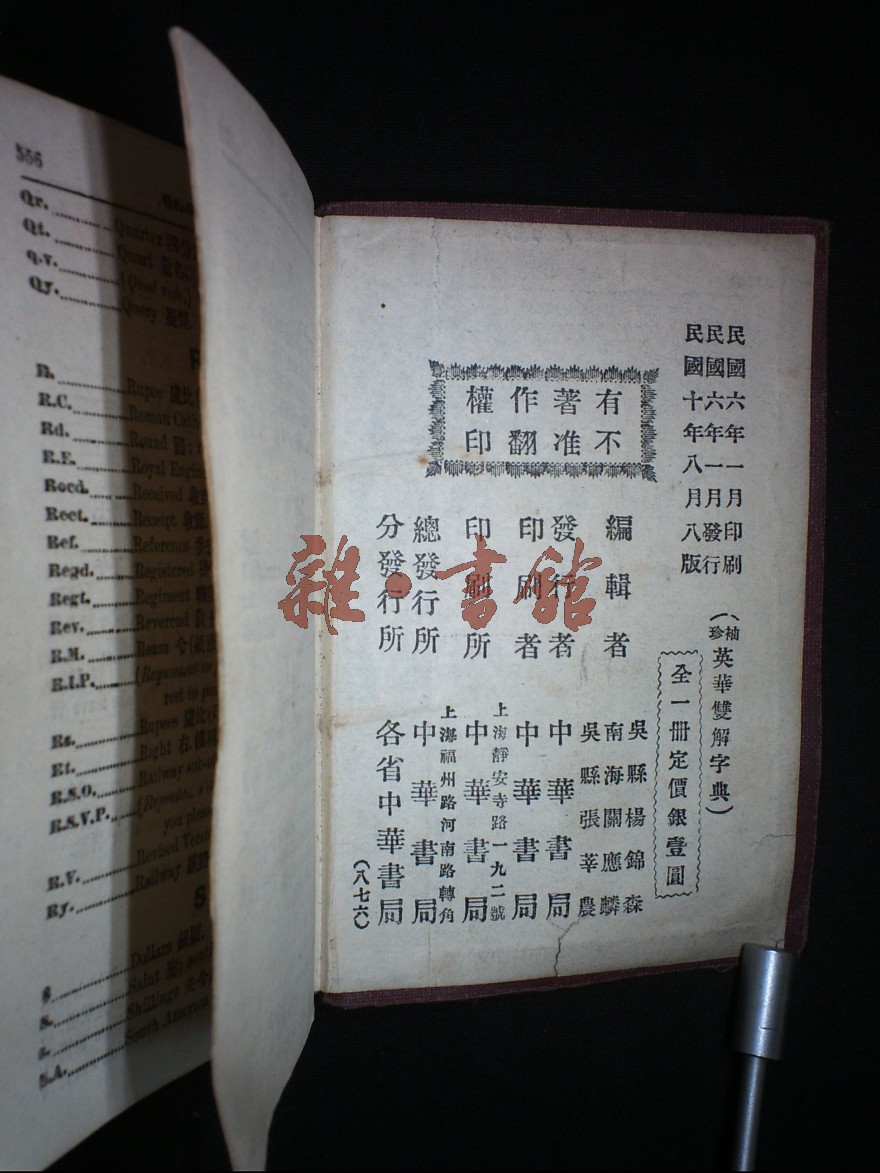 556
Qr. Quarter
Qt. Quart
q.v. (Quod vide.)
Qy. Query
R. Rupee 盧比
R.C. Roman Cath
Rd. Round
R.E. Royal Engine
Recd. Received
Rect. Receipt
Ref. Reference
Regd. Registered
Regt. Regiment
Rev. Reverend
R.M. Ream 令
R.I.P.
rest in
Rs. Rupees 盧比
Rt. Right 右
R.S.O. Railway sub
R.S.V.P.
you please
R.V. Revised Vers
Ry. Railway
S
$ Dollars
S. Saint
s. Shillings
S.A. South America
民國六年一月印刷
民國六年一月發行
民國十年八月八版
有著作權
不准翻印
(袖珍英華雙解字典)
全一冊定價銀壹圓
編輯者
吳縣楊錦森
南海關應麟
吳縣張莘農
發行者 中華書局
印刷者 中華書局
印刷所 上海靜安寺路一九二號
中華書局
總發行所 上海福州路河南路轉角
中華書局
分發行所 各省中華書局
(八七六)
雜·書館